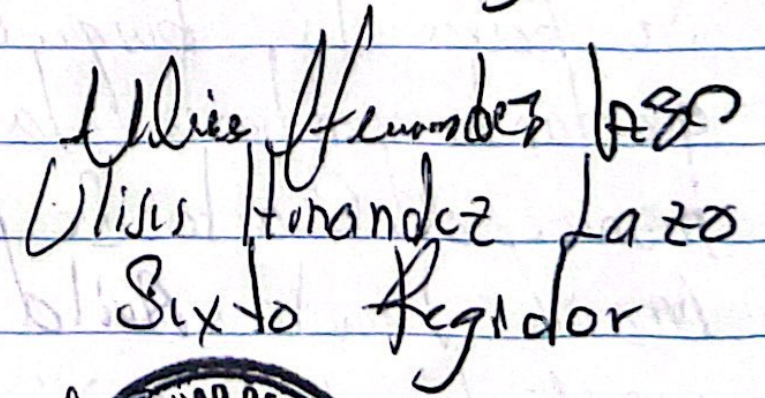 Ulises Hernandez Lazo
Ulises Hernandez Lazo
Sixto Regidor